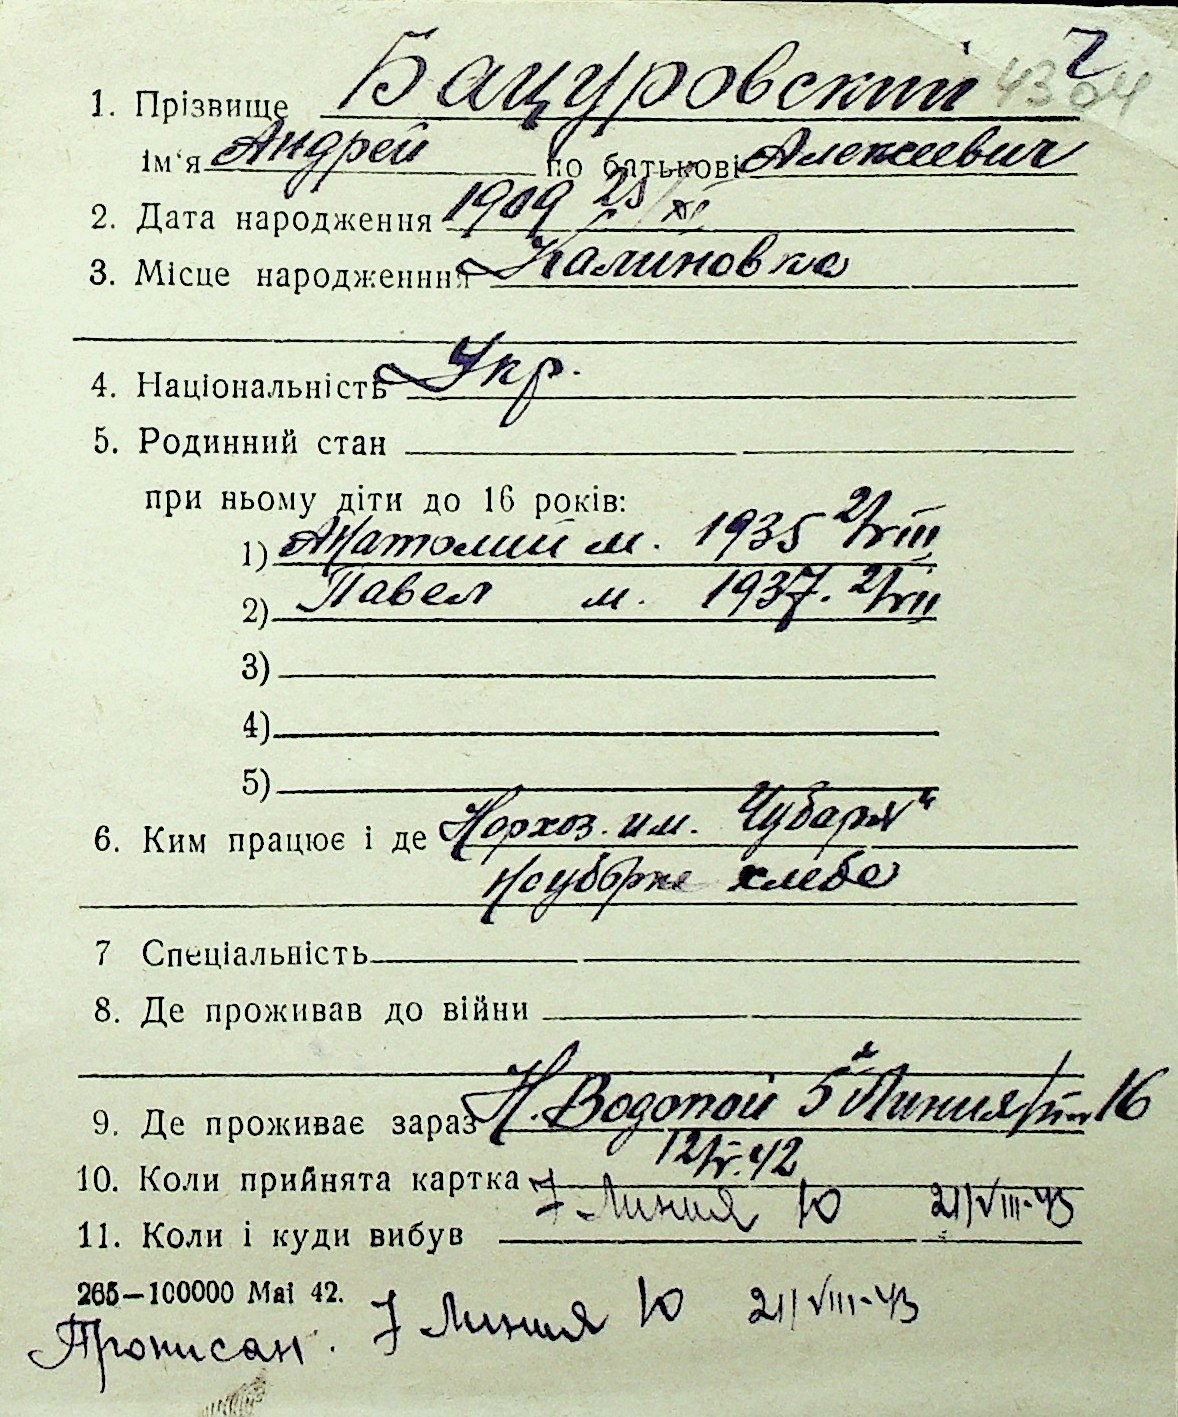 7
4304
1. Прізвище Бацуровский
ім'я Андрей по батькові Алексеевич
2. Дата народження 1909 25/XI
3. Місце народженння Калиновка
4. Національність Укр.
5. Родинний стан
при ньому діти до 16 років:
1) Анатолий м. 1935 2/VIII
2) Павел м. 1937. 2/VII
3)
4)
5)
6. Ким працює і де им. Чубаря"
хлеба
7 Спеціальність
8. Де проживав до війни
9. Де проживає зараз Н. Водопой 5я Линия 16
10. Коли прийнята картка 12/V.42
7 Линия 10 21/VIII-43
11. Коли і куди вибув
265—100000 Mai 42.
Прописан. 7 Линия 10 21/VIII-43